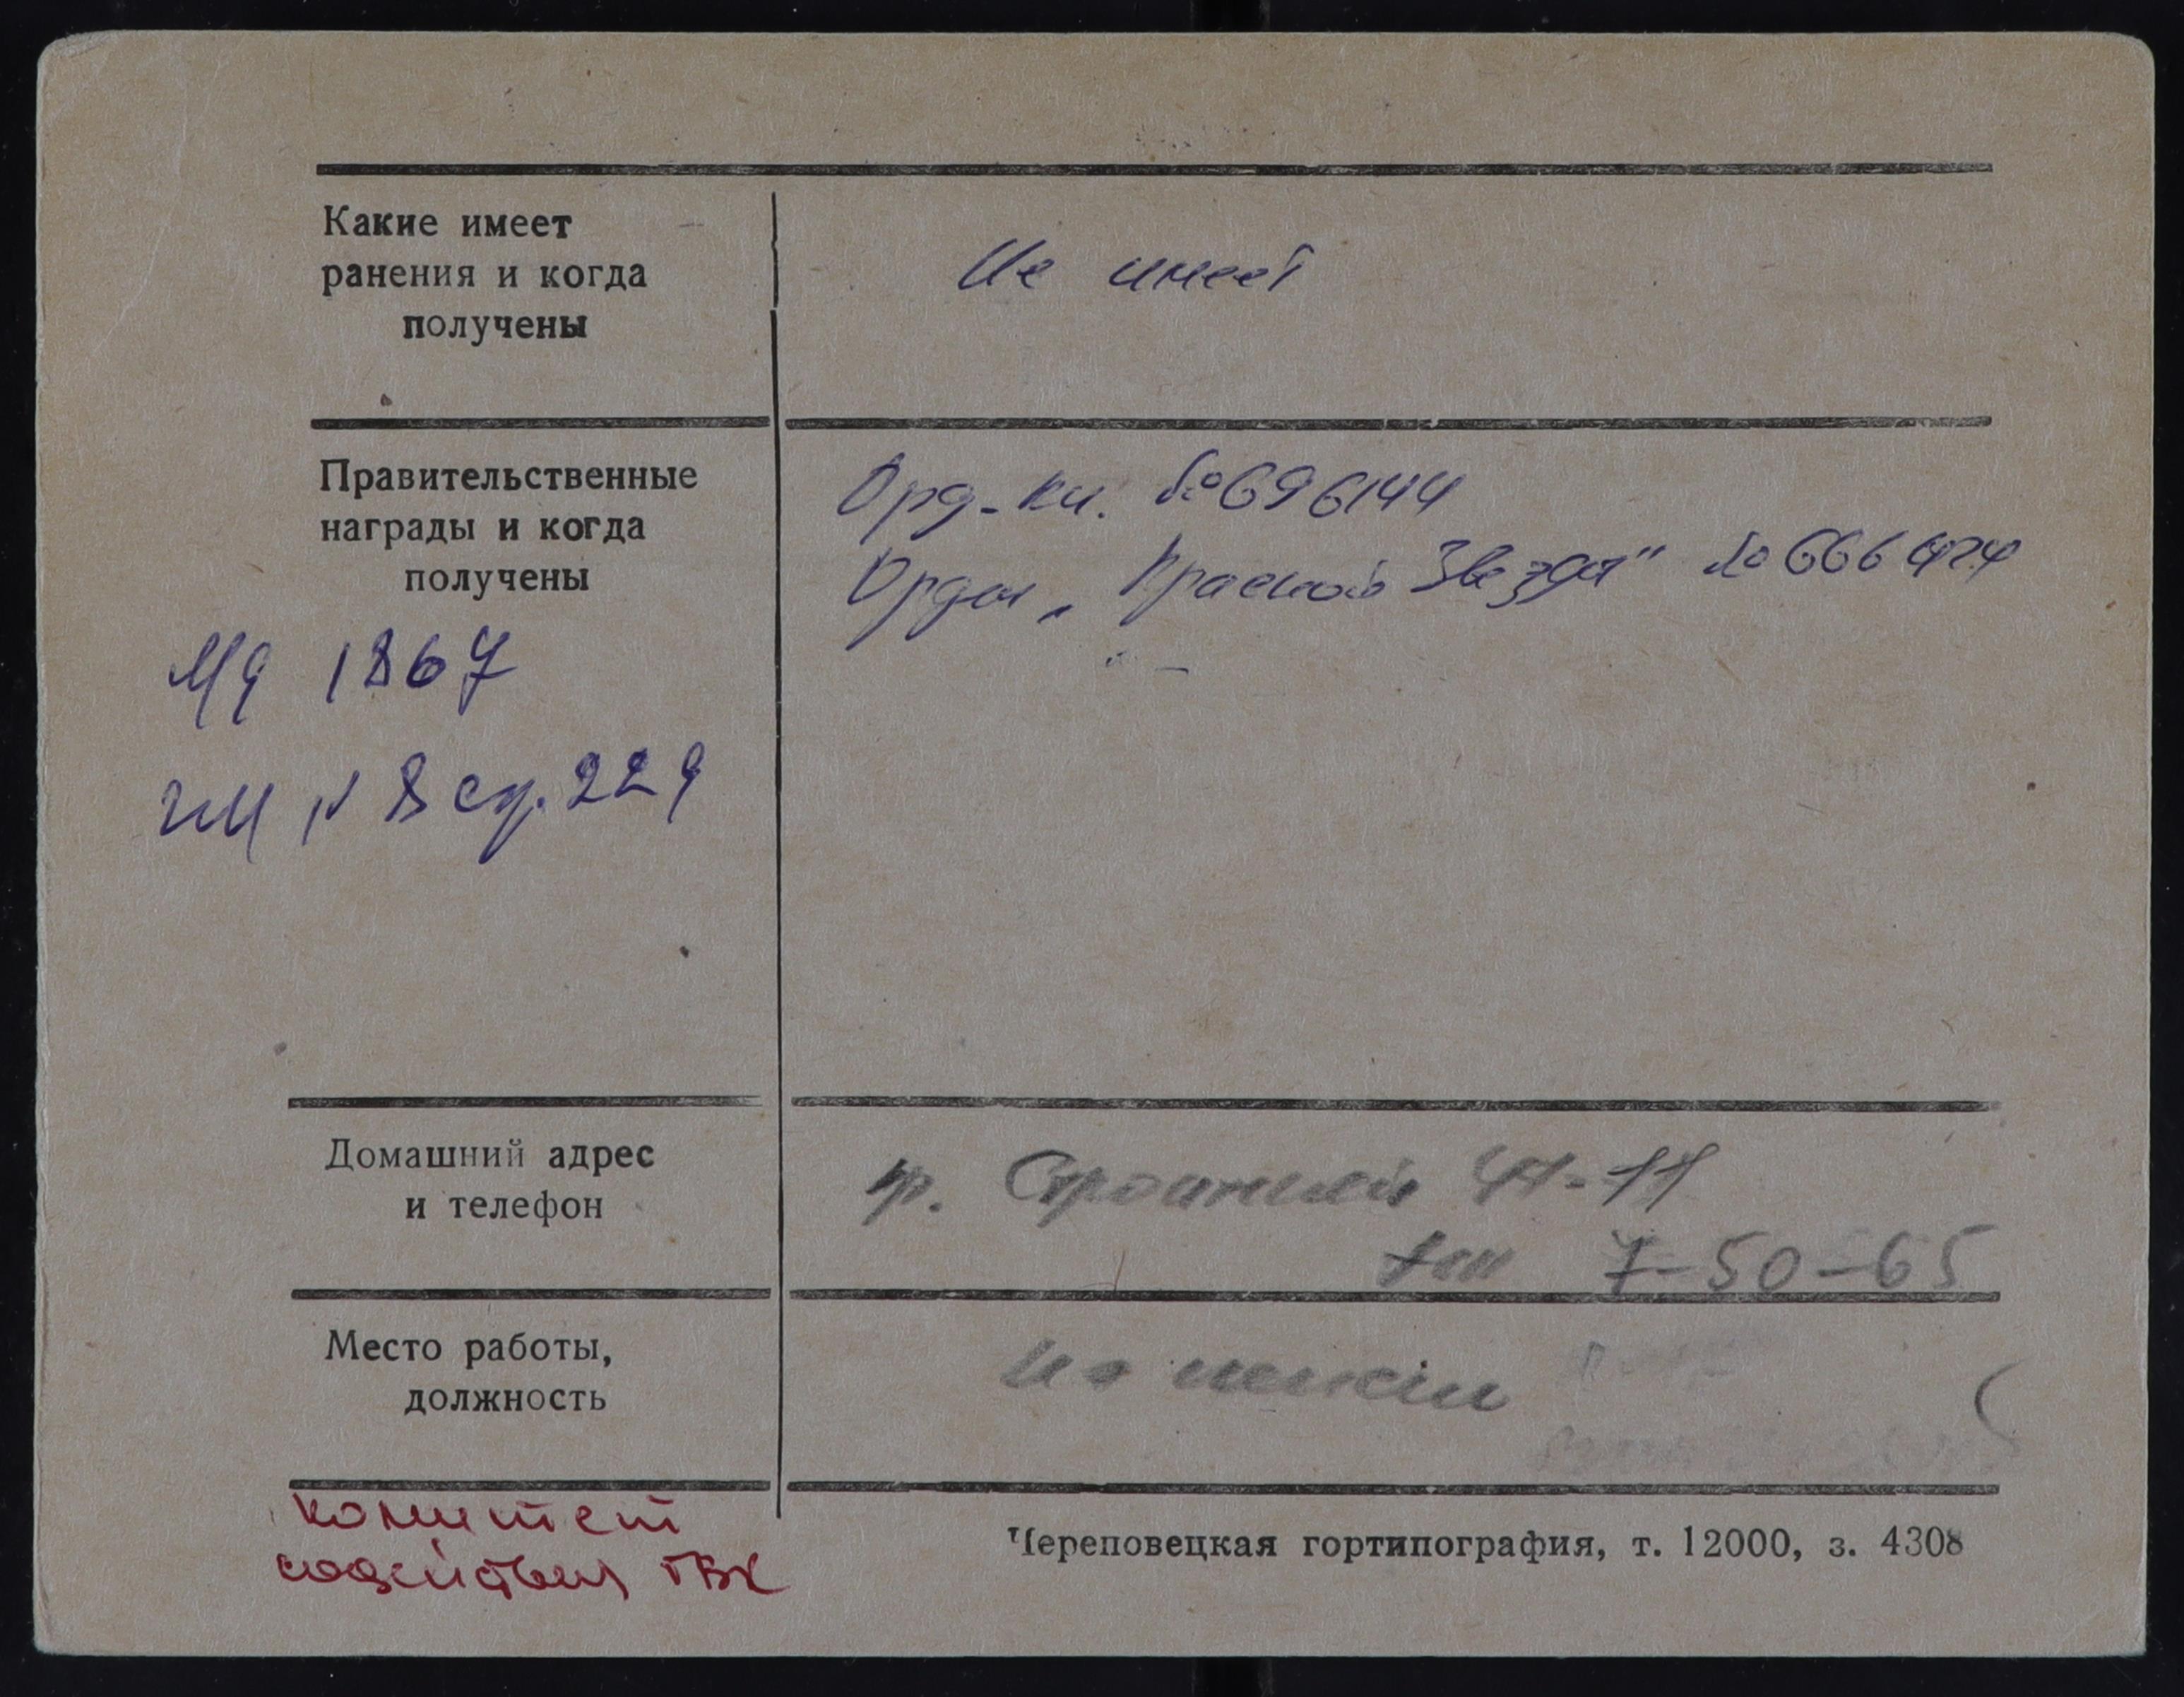 Какие имеет
ранения и когда
получены
Не имеет
Правительственные
награды и когда
получены
Орд-кн. №696144
Орден „Красной Звезды" №666424
МД 1867
ИМ № 8 ср. 229
Домашний адрес
и телефон
пр. Строителей 4А-11
тел 7-50-65
Место работы,
должность
На пенсии
комитет
содействия ГВК
Череповецкая гортипография, т. 12000, з. 4308